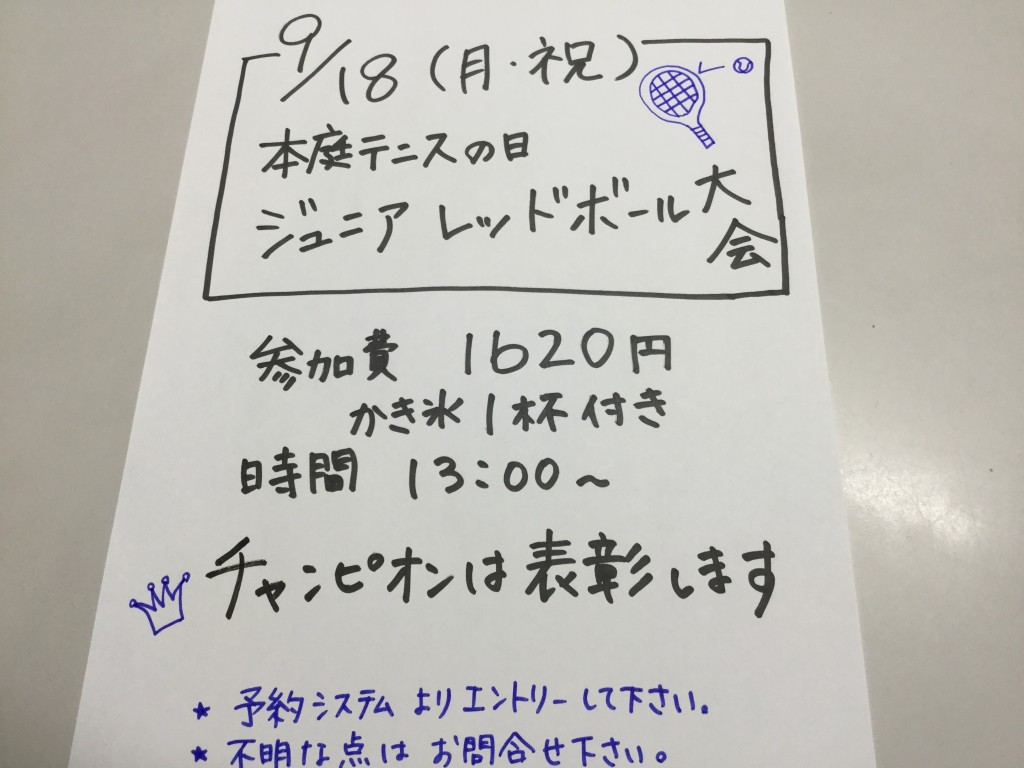 9/18(月・祝)
本庭テニスの日
ジュニア レッドボール大会
参加費 1620円
かき氷1杯付き
時間 13:00〜
チャンピオンは表彰します
★ 予約システムよりエントリーして下さい。
★ 不明な点は お問合せ下さい。